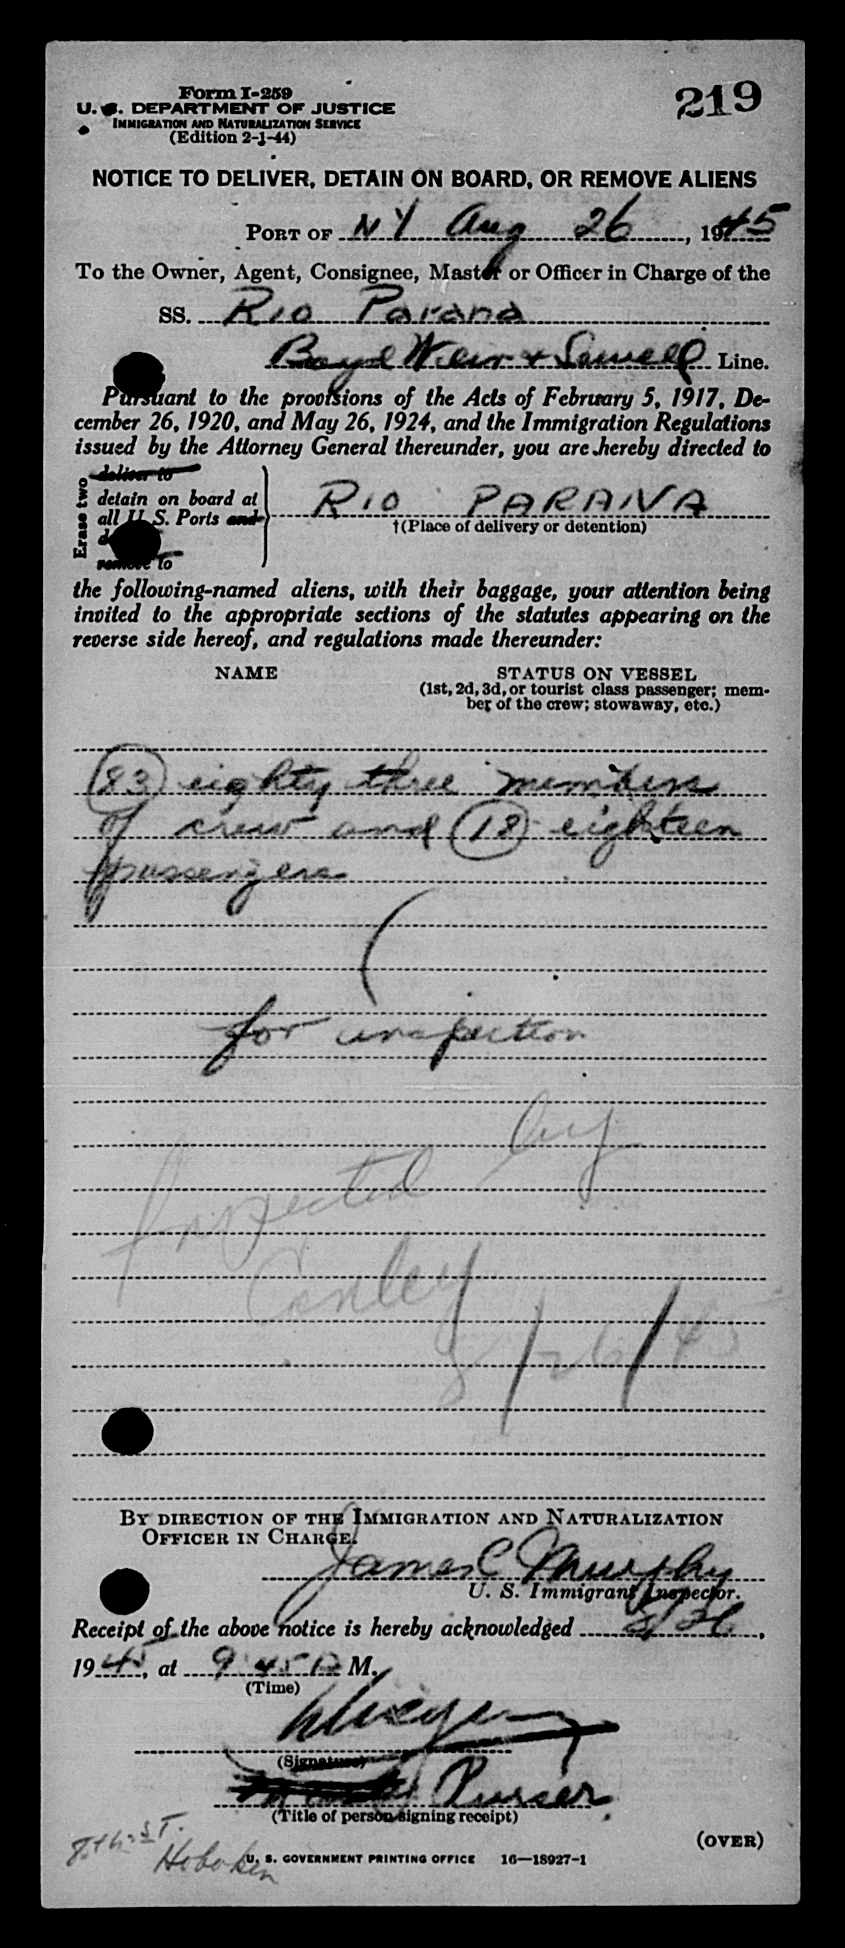 Form I-259
219
U. S. DEPARTMENT OF JUSTICE
IMMIGRATION AND NATURALIZATION SERVICE
(Edition 2-1-44)
NOTICE TO DELIVER, DETAIN ON BOARD, OR REMOVE ALIENS
PORT OF NY Aug 26, 1945
To the Owner, Agent, Consignee, Master or Officer in Charge of the
SS. Rio Parana
Boyd Weir & Sewell Line.
Pursuant to the provisions of the Acts of February 5, 1917, De-
cember 26, 1920, and May 26, 1924, and the Immigration Regulations
issued by the Attorney General thereunder, you are hereby directed to
Erase two
deliver to
detain on board at
all U. S. Ports and
remove to
RIO PARANA
†(Place of delivery or detention)
the following-named aliens, with their baggage, your attention being
invited to the appropriate sections of the statutes appearing on the
reverse side hereof, and regulations made thereunder:
NAME
STATUS ON VESSEL
(1st, 2d, 3d, or tourist class passenger; mem-
ber of the crew; stowaway, etc.)
(83) eighty three members
of crew and (18) eighteen
passengers
for inspection
Inspected by
Conley
8/26/45
BY DIRECTION OF THE IMMIGRATION AND NATURALIZATION
OFFICER IN CHARGE.
James C Murphy
U. S. Immigrant Inspector.
Receipt of the above notice is hereby acknowledged 8/26,
1945, at 9:45 A M.
(Time)
(Signature)
Purser
(Title of person signing receipt)
(OVER)
8th ST.
Hoboken
U. S. GOVERNMENT PRINTING OFFICE 16—18927-1